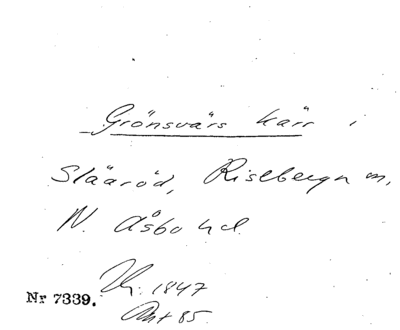 Grönsvärs kärr i
Slääröd, Riseberga sn,
N. Åsbo hd.
1847
Nr 7339.
Ant 85.